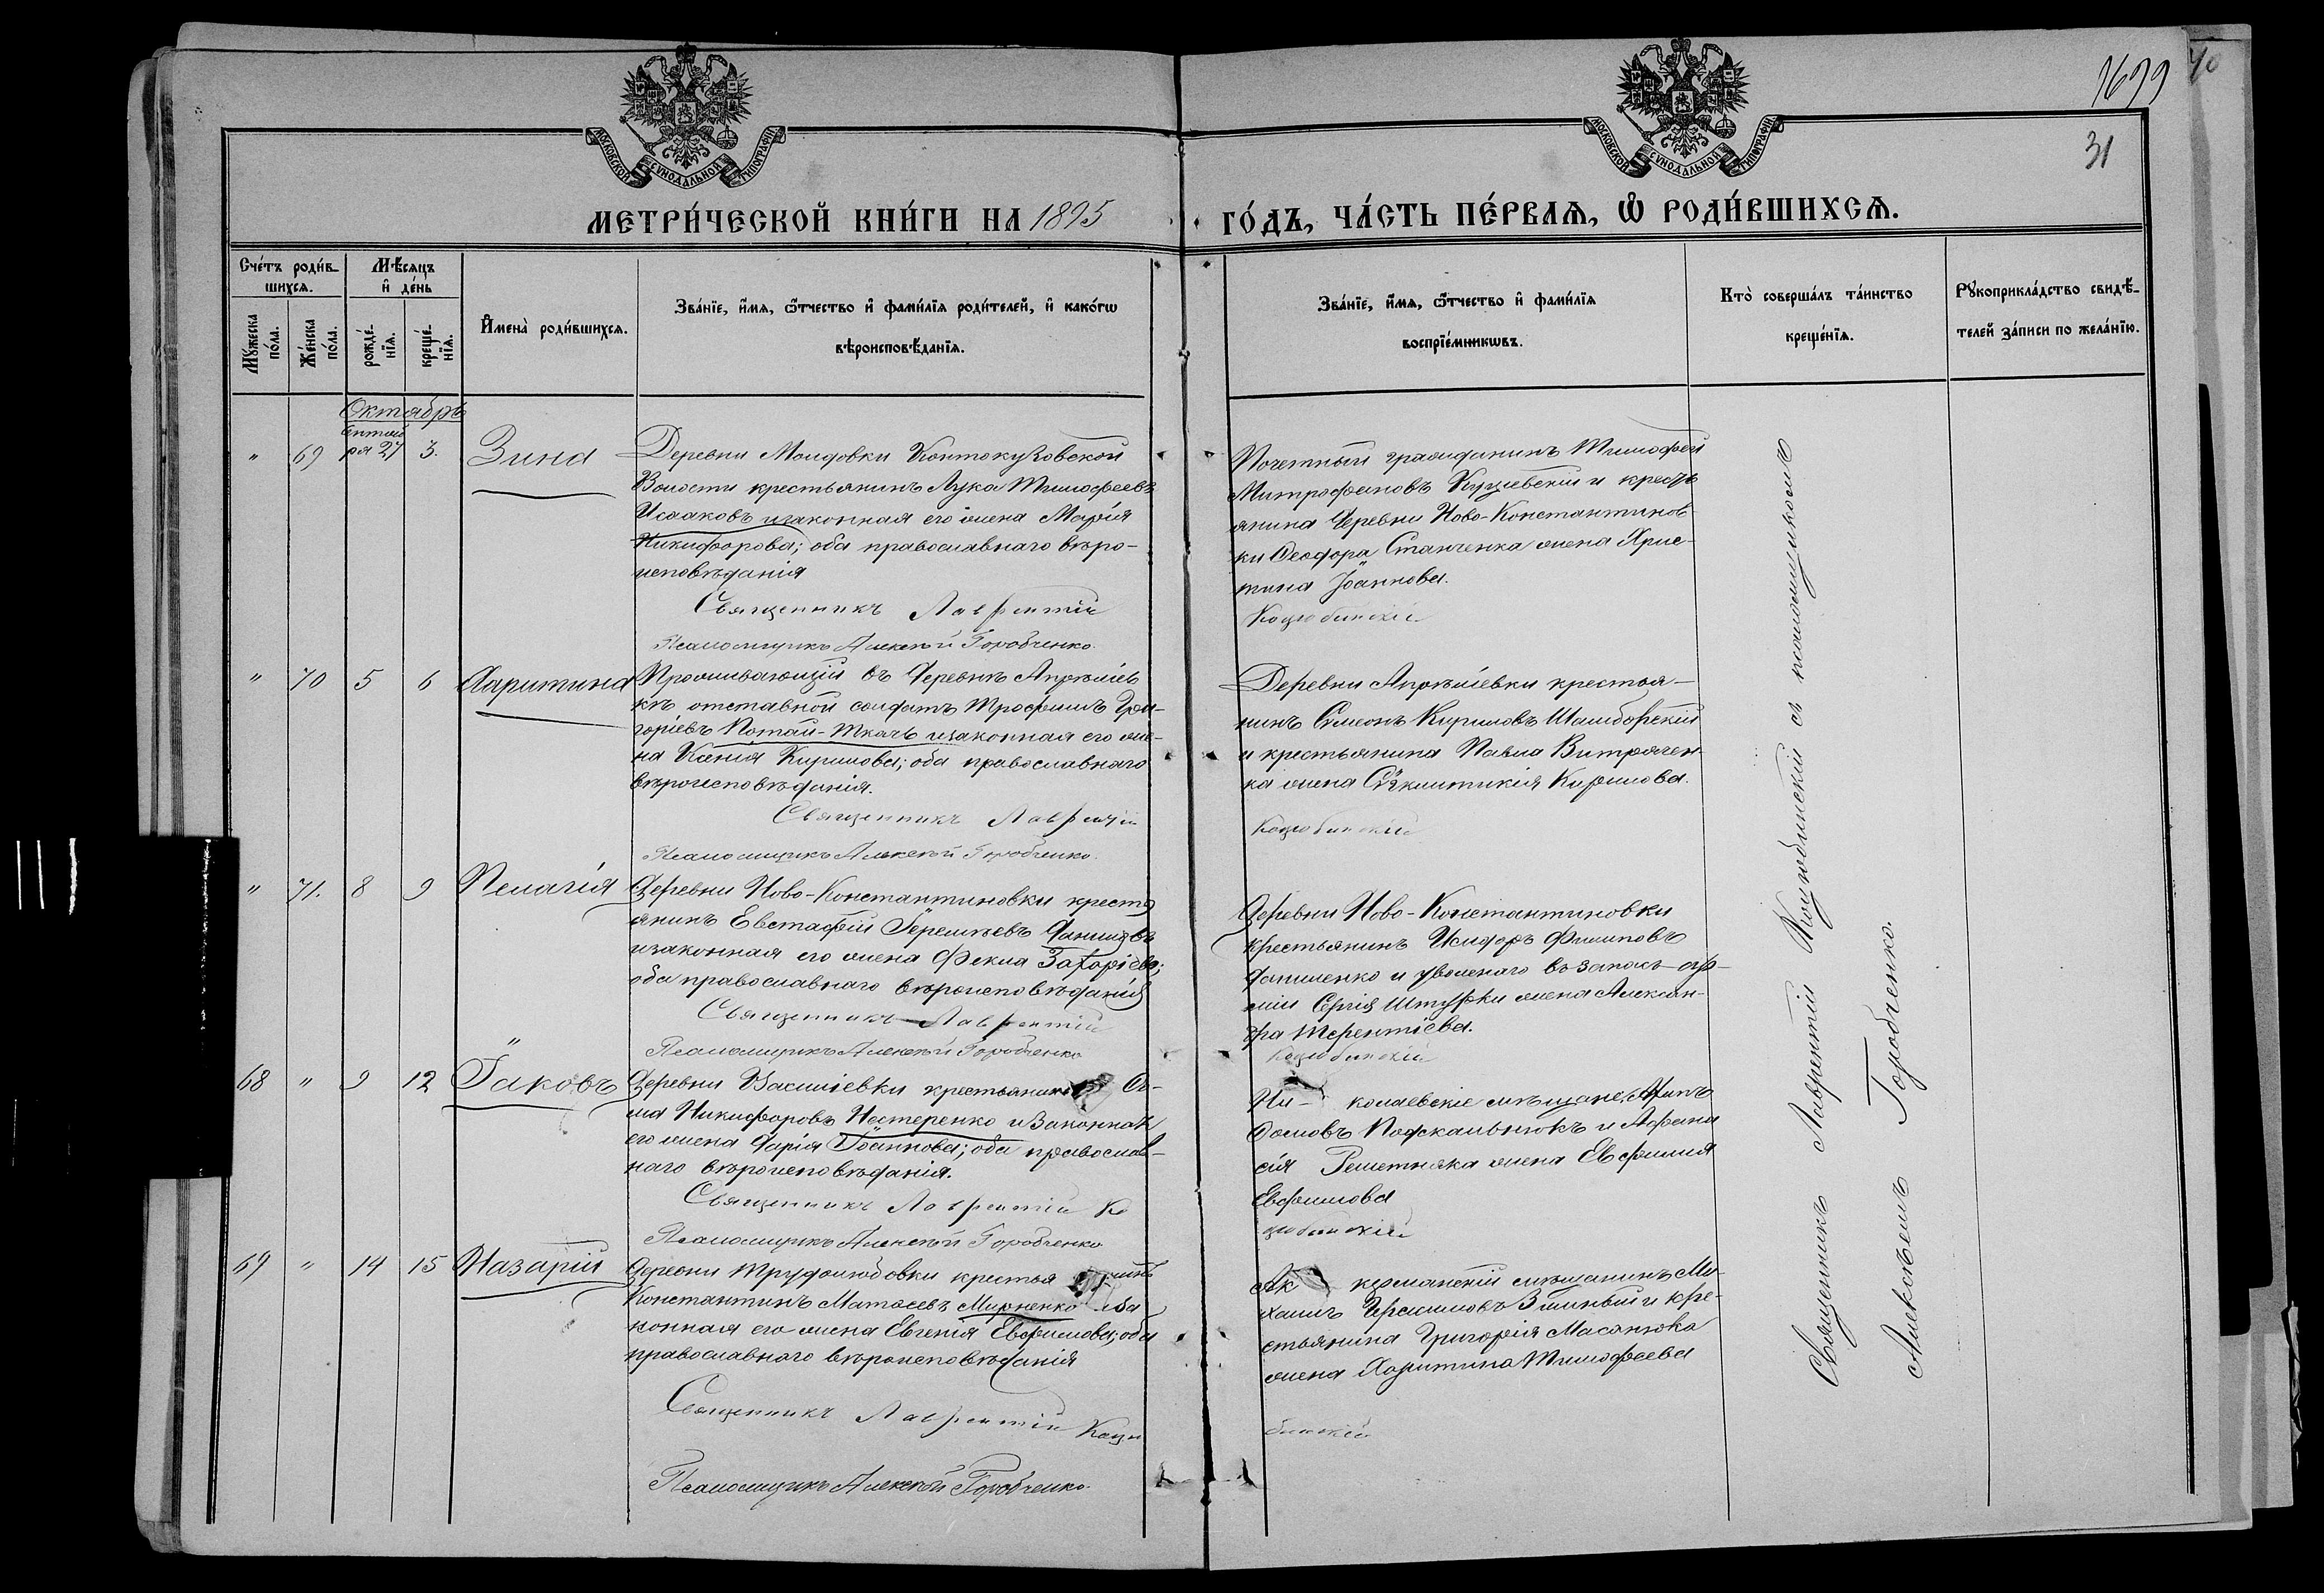 1699
40
31
МОСКОВСКОЙ СѴНОДАЛЬНОЙ ТИПОГРАФІИ
МОСКОВСКОЙ СѴНОДАЛЬНОЙ ТИПОГРАФІИ
МЕТРИ́ЧЕСКОЙ КНИ́ГИ НА 1895 ГО́ДЪ, ЧА́СТЬ ПЕ́РВАЯ, Ѡ РОДИ́ВШИХСЯ.
Сче́тъ роди́в-
шихся.
Мѣ́сяцъ
и де́нь
Мꙋжеска по́ла.
Же́нска по́ла.
рожде́-
нїя.
креще́-
нїя.
Имена̀ роди́вшихся.
Зва́нїе, и́мя, ѻ҆́тчество и фами́лїя роди́телей, и како́гѡ
вѣроисповѣ́данїя.
Зва́нїе, и́мя, ѻ҆́тчество и фами́лїя
воспрїе́мникѡвъ.
Кто̀ соверша́лъ та́инство
креще́нїя.
Рꙋкоприкла́дство свидѣ́-
телей за́писи по жела́нїю.
Октябрь
" 69 Сентяб
ря 27 3. Зина
Деревни Контокузовской
Волости крестьянинъ Лука Тимофеевъ
Исааковъ и законная его жена Марія
Никифорова; оба православнаго вѣро-
исповѣданія
Священникъ Лаврентій
Псаломщикъ Алексѣй Горобченко.
Почетный гражданинъ Тимофей
Митрофановъ и кресть
янина деревни Ново-Константинов
ки Ѳеодора Станченка жена Хрис-
тина Іоаннова.
Коцюбинскій
" 70 5 6 Харитина
Проживающій въ деревнѣ Апрѣлiев
кѣ отставной солдатъ Трофимъ Гри-
горіевъ Потай-Ткачъ и законная его же-
на Ксенія Кирилова; оба православнаго
вѣроисповѣданія.
Священникъ Лаврентій
Псаломщикъ Алексѣй Горобченко.
Деревни Апрѣліевки крестья-
нинъ Симеонъ Кириловъ
и крестьянина Павла Витрячен
ка жена Кирилова.
Коцюбинскій
" 71. 8 9 Пелагія
Деревни Ново-Константиновки кресть
янинъ Евстафій Іереміевъ
и законная его жена Ѳекла Захаріева;
оба православнаго вѣроисповѣданія
Священникъ Лаврентій
Псаломщикъ Алексѣй Горобченко
Деревни Ново-Константиновки
крестьянинъ Исидоръ Филиповъ
Даниленко и уволенаго въ запасъ ар-
міи Сергія жена Алексан-
дра Терентіева.
Коцюбинскій
68 " 9 12 Іаковъ
Деревни Василіевки крестьянинъ Ѳо-
ма Никифоровъ Нестеренко и законная
его жена Дарія Іоаннова; оба православ-
наго вѣроисповѣданія.
Священникъ Лаврентій Ко
Псаломщикъ Алексѣй Горобченко
Ни- колаевскіе мѣщане,
Ѳомовъ и Афана
сія Решетняка жена Евфимія
Евфимова
цюбинскій
69 " 14 15 Назарій
Деревни Трудолюбовки крестья нинъ
Константинъ Матѳеевъ Мирненко и за
конная его жена Евгенія Евфимова; оба
православнаго вѣроисповѣданія
Священникъ Лаврентій Коцю
Псаломщикъ Алексѣй Горобченко.
Ак керманскій мѣщанинъ Ми-
хаилъ Герасимовъ и кре-
стьянина Григорія Масанюка
жена Харитина Тимофеева
бинскій
Священникъ Лаврентій Коцюбинскій съ псаломщикомъ
Алексѣемъ Горобченко.